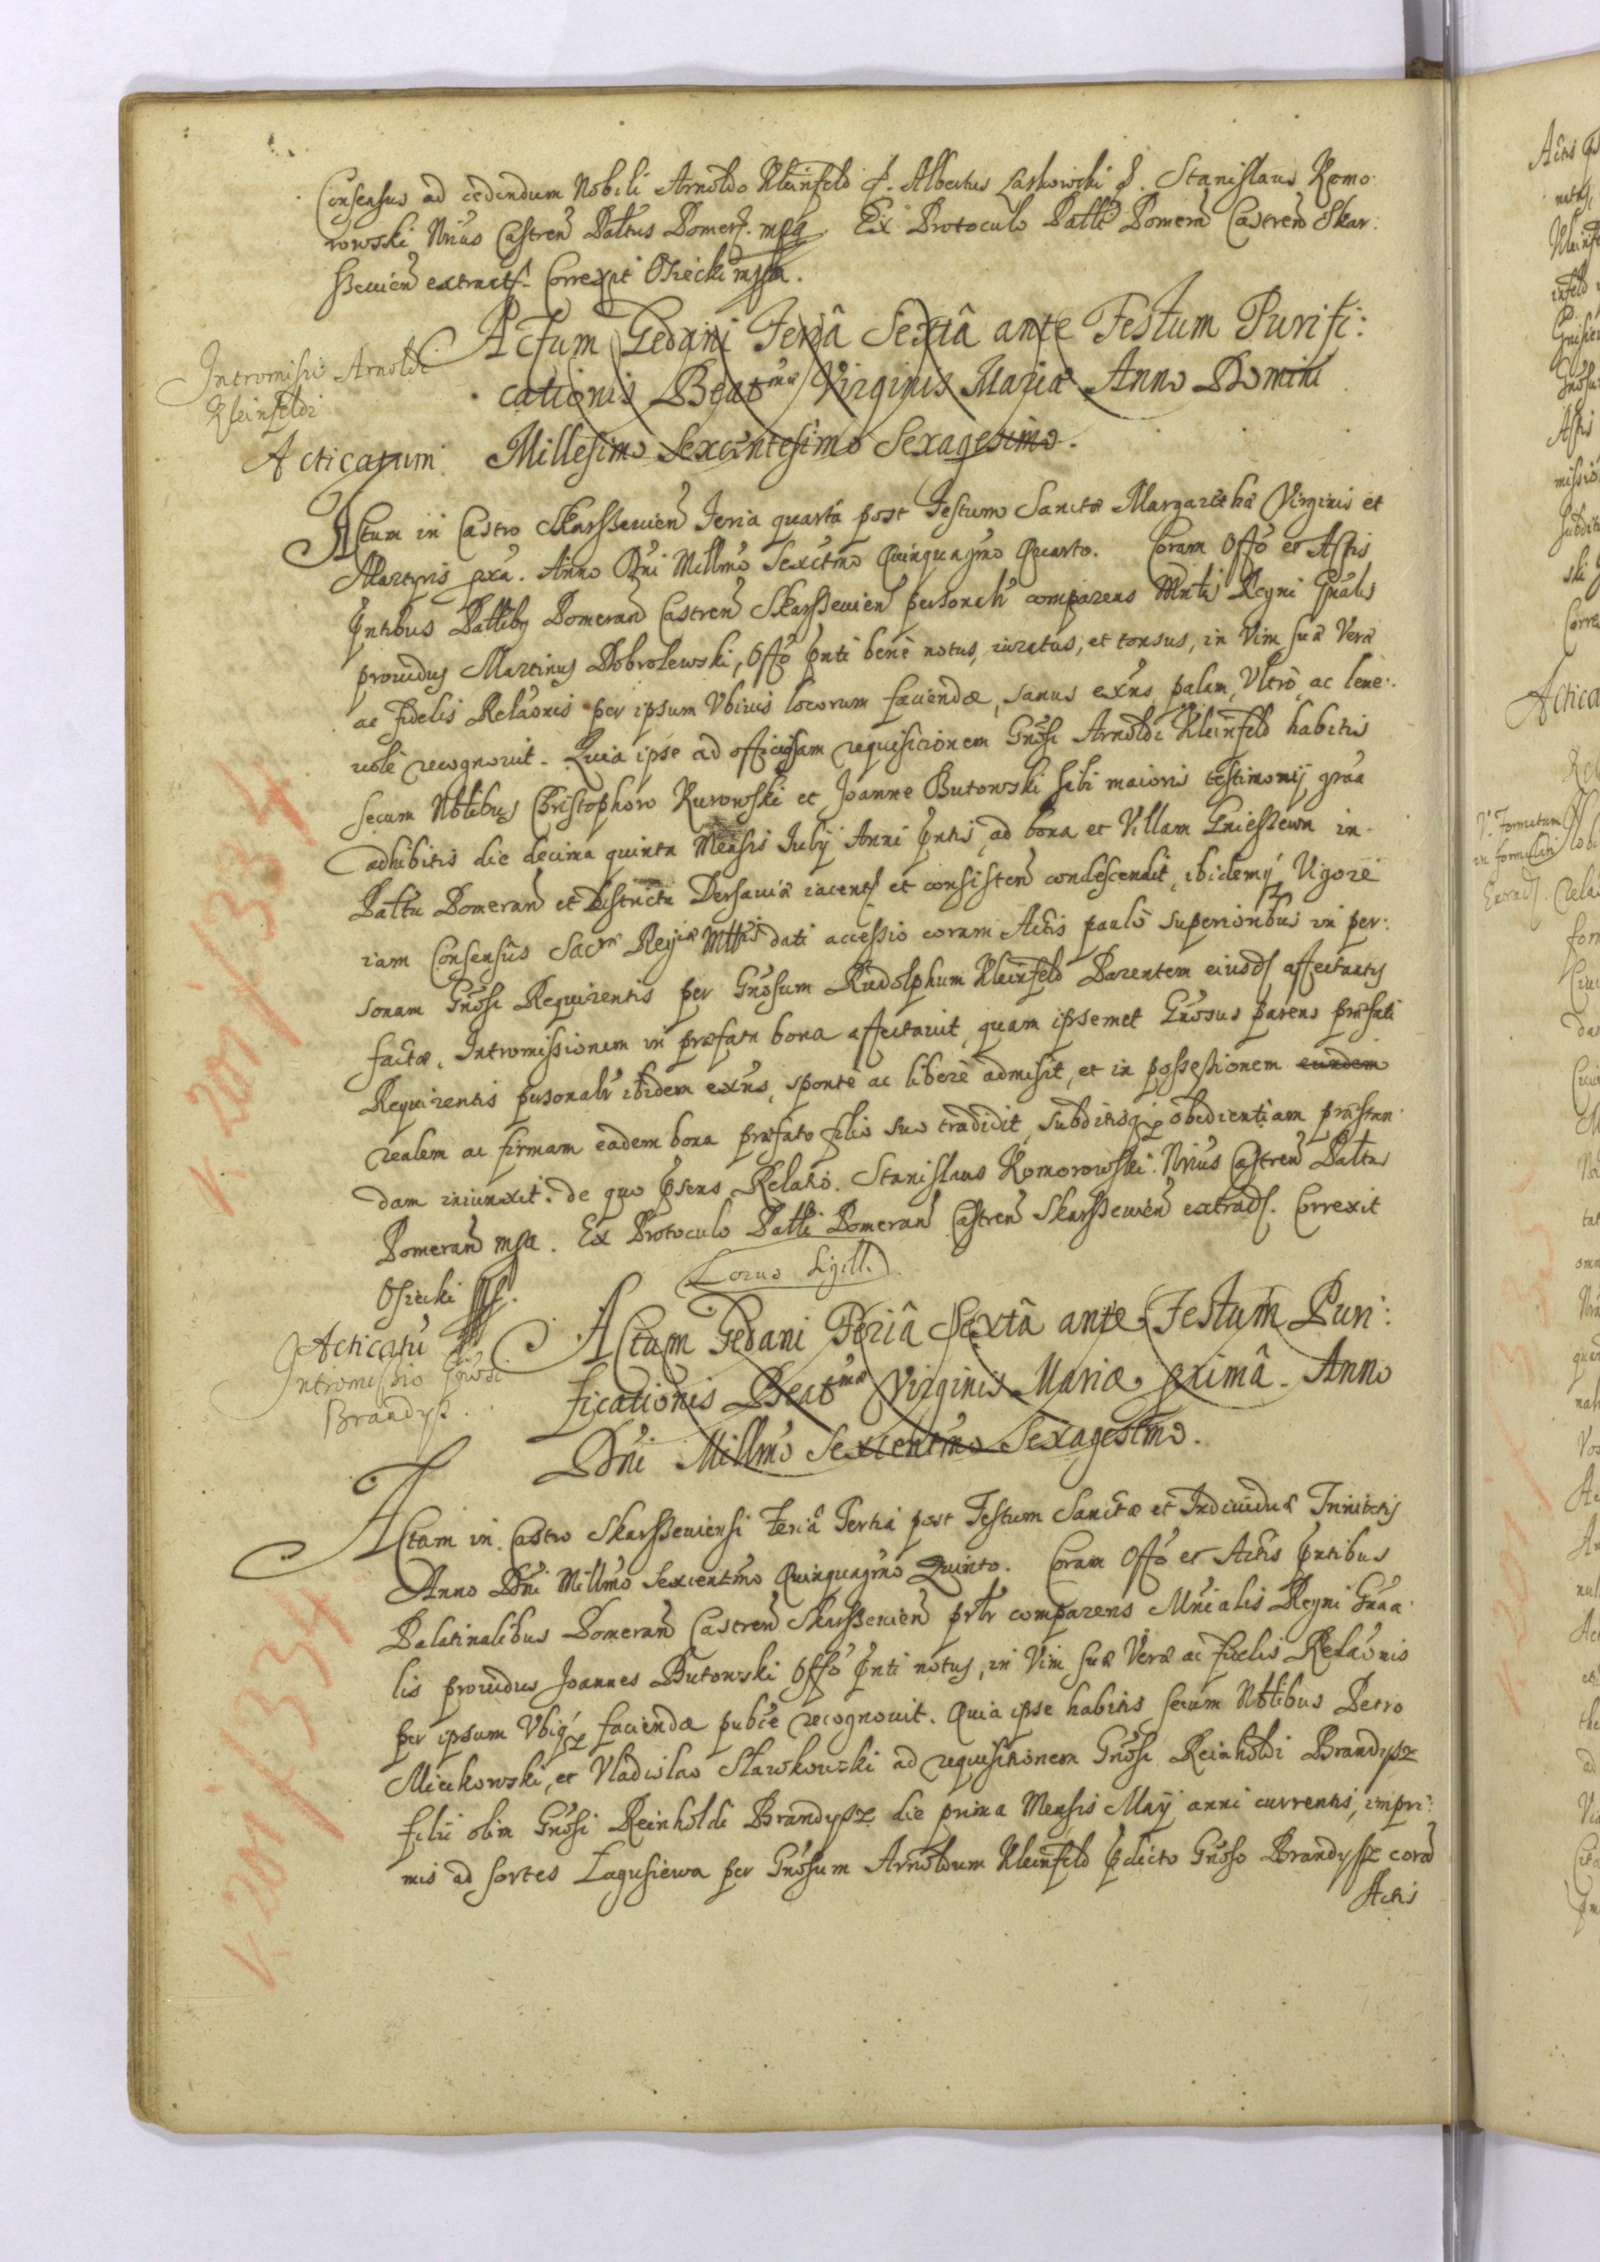 Consensus ad cedendum Nobili Arnoldo Kleinfeld Albertus Laskowski Stanislaus Komo:
rowski Nrius Castren Palttus Pomer. mpa. Ex Protoculo Paltti Pomeran Castren Skar:
sseuien extract. Correxit Osiecki mpa.
Intromissio Arnoldi
Kleinfeldi
Acticatum
Actum Gedani Feriâ Sextâ ante Festum Purifi:
cationis Beatmae Virginis Mariæ Anno Domini
Millesimo Sexcentesimo Sexagesimo.
Actum in Castro Skarsseuien Feria quarta post Festum Sanctæ Margarethæ Virginis et
Martyris pxa. Anno Dni Millmo Sexctmo Quinquagmo Quarto. Coram Offo et Actis
Pntibus Palttiby Pomeran Castren Skarsseuien personalr comparens Mntlis Regni Gnalis
prouidus Martinus Dobrolewski, Offo Pnti benè notus, iuratus, et tonsus, in Vim suæ Veræ
ac fidelis Relaonis per ipsum Vbiuis locorum faciendæ, sanus exns palam, Vltrò, ac bene:
uolè recognouit. Quia ipse ad officiosam requisitionem Gnosi Arnoldi Kleinfeld habitis
secum Nbilibus Christophoro Kurowski et Joanne Butowski sibi maioris testimonij graa
adhibitis die decima quinta Mensis July Anni Pntis, ad bona et Villam Gniessewa in
Palttu Pomeran et Districtu Dersauiæ iacent et consisten condescendit, ibidemq Vigore
iam Consensûs Sacræ Regiæ Mttis dati accessio coram Actis paulò superioribus in per:
sonam Gnosi Requirentis per Gnosum Rudolphum Kleinfeld Parentem eiusd affectatis
factæ, Intromissionem in præfata bona affectauit, quam ipsemet Gnosus parens præfati
Requirentis personalr ibidem exns, spontè ac liberè admisit, et in possessionem eundem
realem ac firmam eadem bona præfato filio suo tradidit, subditisq obedientiam præstan:
dam iniunxit. de quo Psens Relatio. Stanislaus Komorowski Nrius Castren Palttus
Pomeran mpa. Ex Protoculo Paltti Pomeran Castren Skarsseuien extrad. Correxit
Osiecki
Locus Sigill.
Acticatu
Intromissio Gnosi
Brandysz.
Actum Gedani Feriâ Sextâ ante Festum Puri:
ficationis Beatmæ Virginis Mariæ, pximâ. Anno
Dni Millmo Sexcentmo Sexagesimo.
Actum in Castro Skarsseuiensi Feriâ Tertia post Festum Sanctæ et Indiuiduæ Trinitatis
Anno Dni Millmo Sexcentmo Quinquagmo Quinto. Coram Offo et Actis Pntibus
Palatinalibus Pomeran Castren Skarsseuien prlr comparens Mnialis Regni Gnaa:
lis prouidus Joannes Butowski Offo Pnti notus, in Vim suæ Veræ ac fidelis Relaonis
per ipsum Vbiq faciendæ pubce recognouit. Quia ipse habitis secum Nbtibus Petro
Mieckowski, et Vladislao Sławkowski ad requisitionem Gnosi Reinholdi Brandysz
filii olim Gnosi Reinholdi Brandysz die prima Mensis Maij anni currentis, impri:
mis ad sortes Łagusiewa per Gnosum Arnoldum Kleinfeld Pdicto Gnoso Brandysz cora
Actis
r. 201/334
r. 201/334